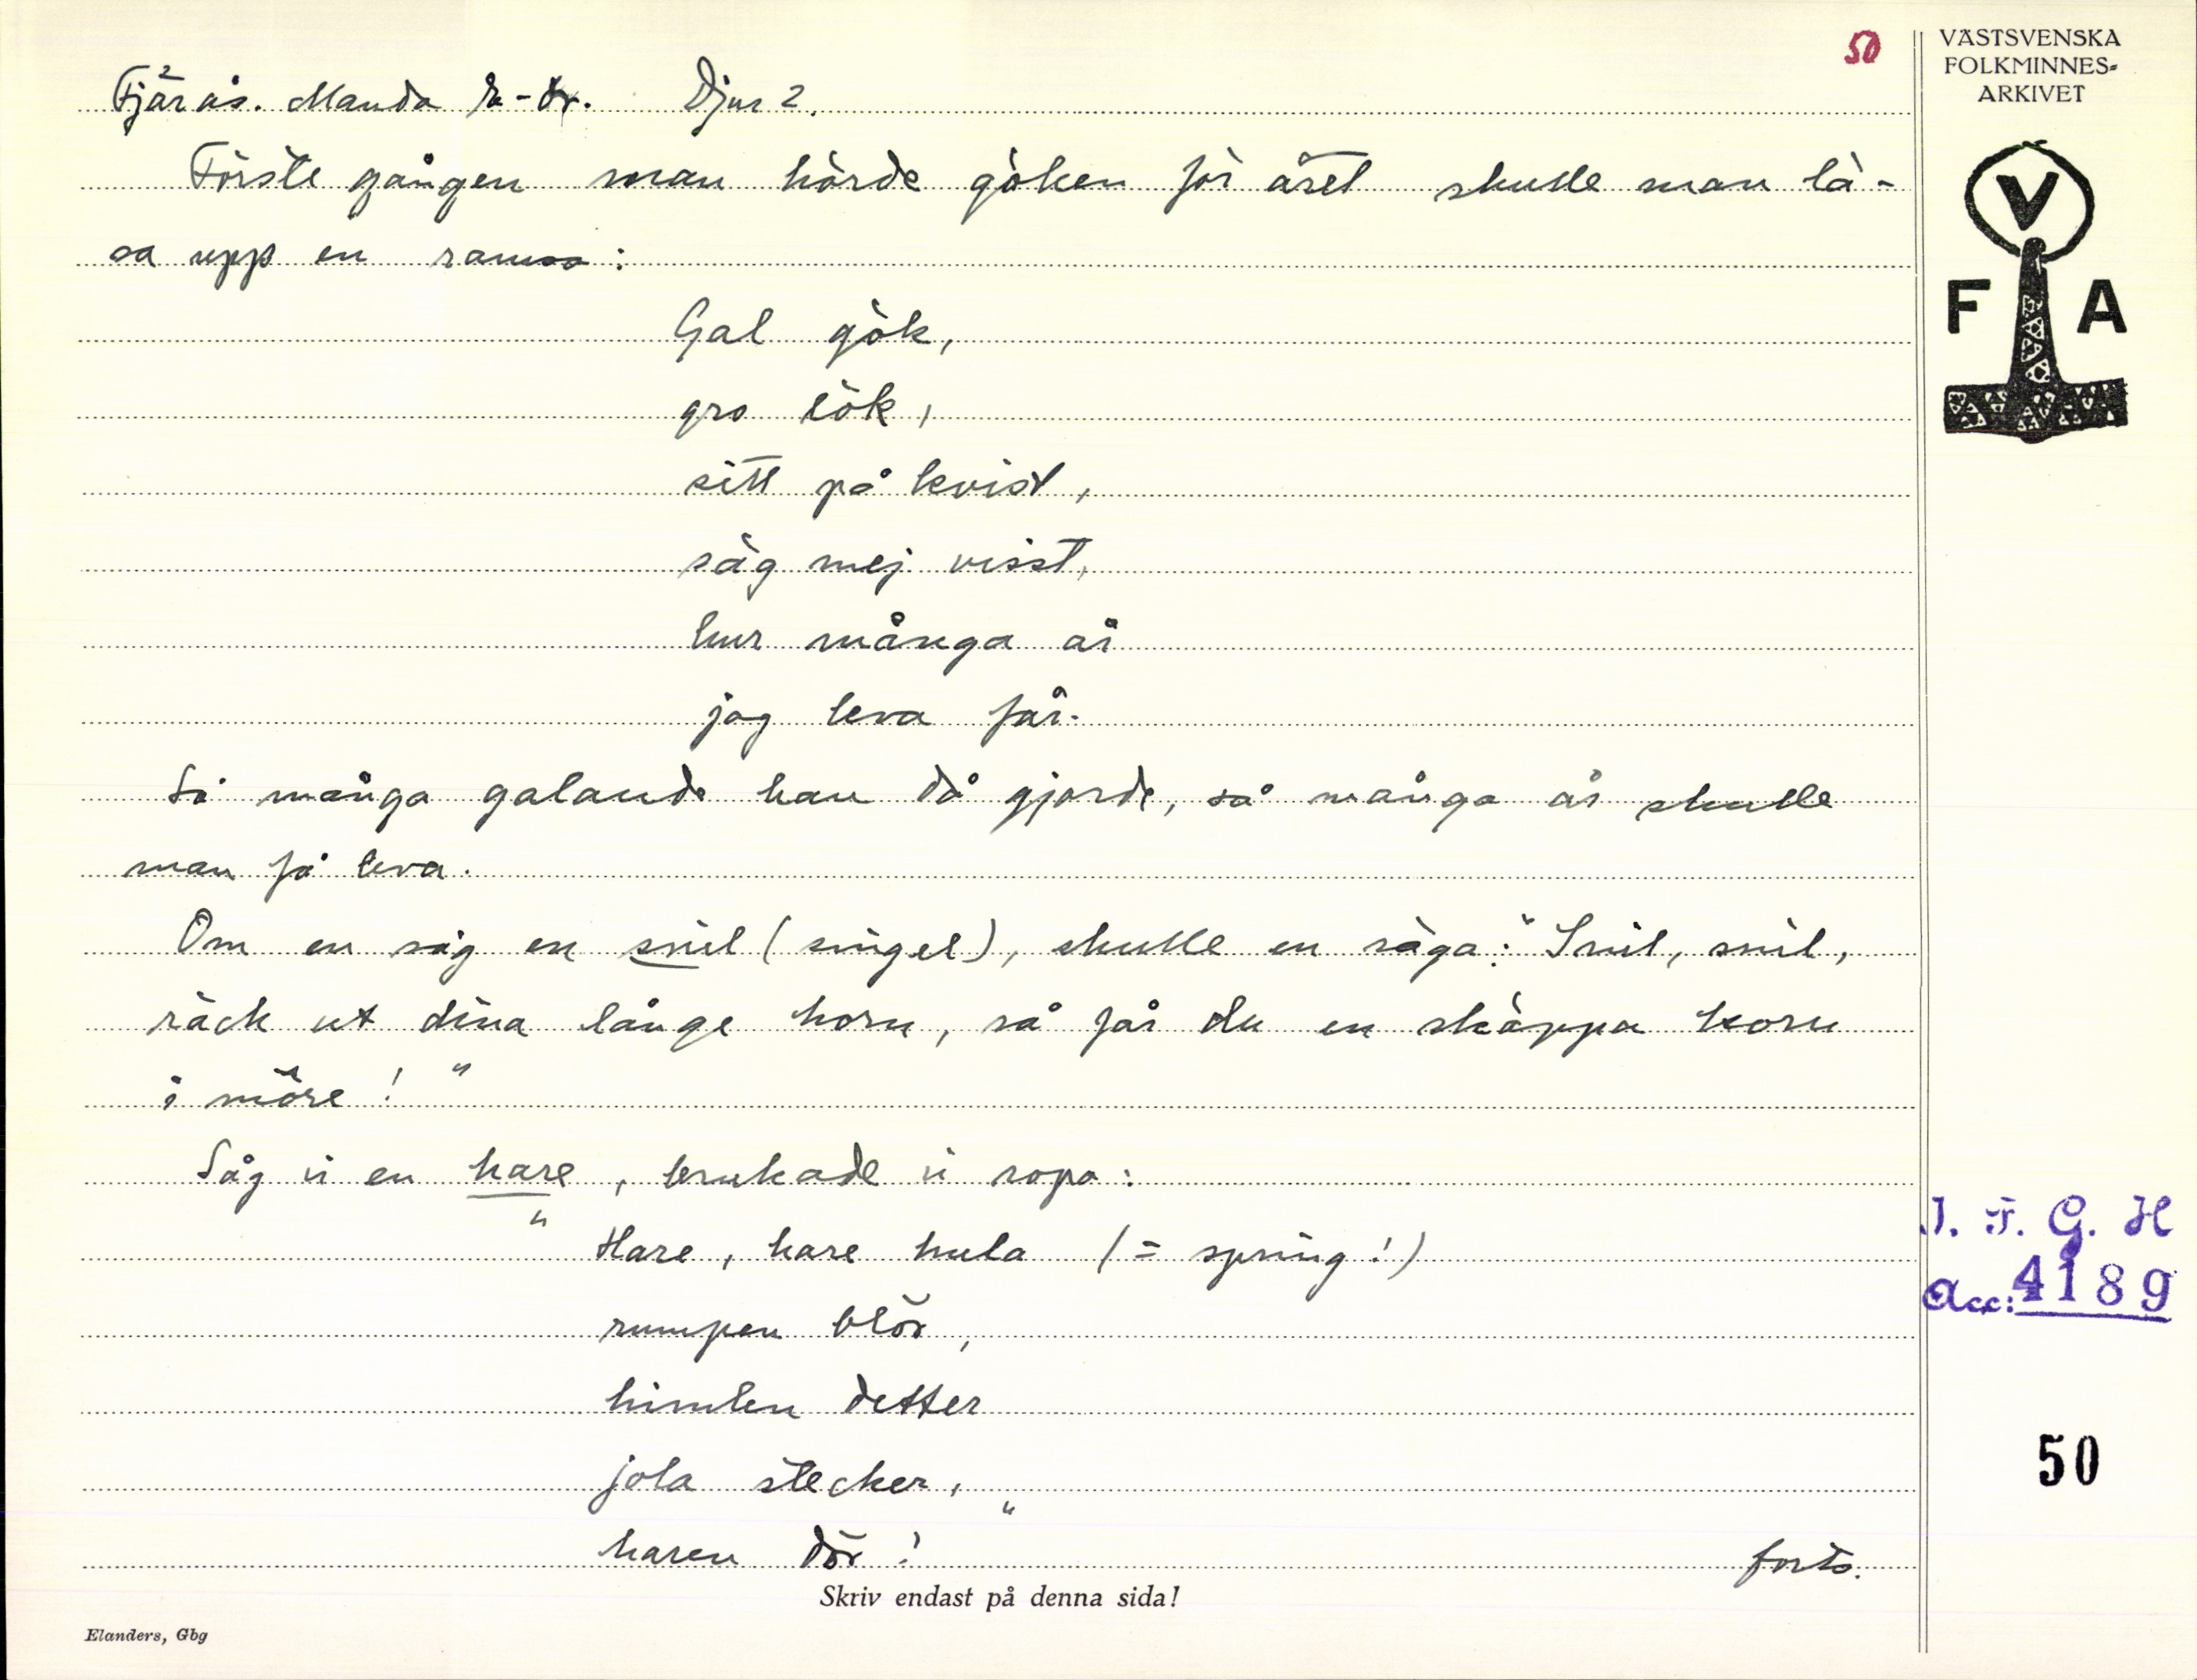 50
VÄSTSVENSKA
FOLKMINNES-
ARKIVET
V
F A
Fjärås. Manda Djur 2.
Förste gången man hörde göken för året skulle man lä-
sa upp en ramsa:
Gal gök,
gro lök,
sitt på kvist,
säg mej visst,
hur många år
jag leva får.
Så många galande han då gjorde, så många år skulle
man få leva.
Om en såg en snil (snigel), skulle en säga: "Snil, snil,
räck ut dina långe horn, så får du en skäppa korn
i möre!"
Såg vi en hare, brukade vi ropa:
"Hare, hare hula (= spring!)
rumpen blör,
himlen detter
jola stecker,
haren dör!"
forts.
I. F. G. H
Acc: 4189
50
Skriv endast på denna sida!
Elanders, Gbg